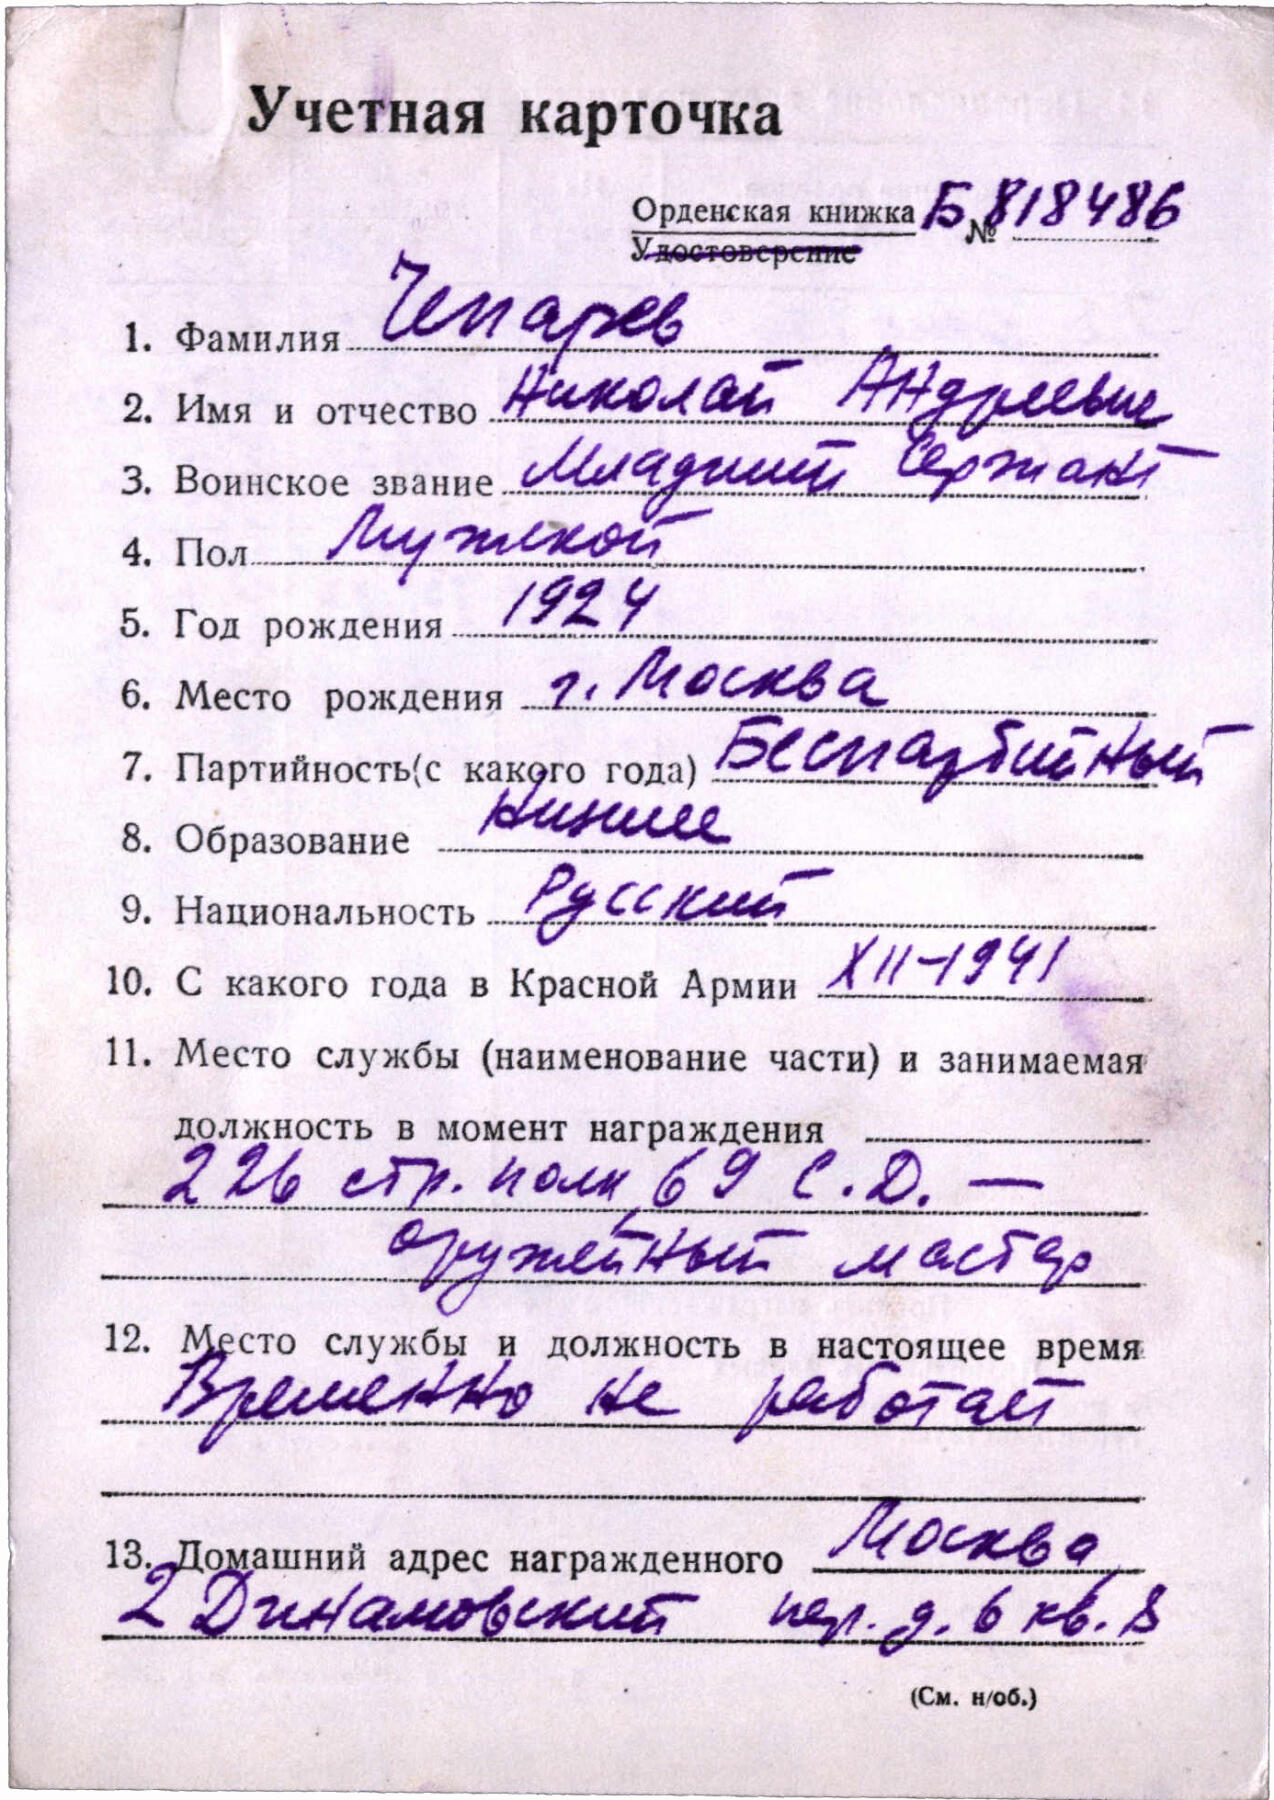 Учетная карточка
Орденская книжка № Б 818486
Удостоверение
1. Фамилия Чепарев
2. Имя и отчество Николай Андреевич
3. Воинское звание Младший Сержант
4. Пол Мужской
5. Год рождения 1924
6. Место рождения г. Москва
7. Партийность (с какого года) Беспартийный
8. Образование Низшее
9. Национальность Русский
10. С какого года в Красной Армии XII-1941
11. Место службы (наименование части) и занимаемая
должность в момент награждения
226 стр. полк, 69 С.Д. —
оружейный мастер
12. Место службы и должность в настоящее время
Временно не работает
13. Домашний адрес награжденного Москва,
2 Динамовский пер. д. 6 кв. 8
(См. н/об.)